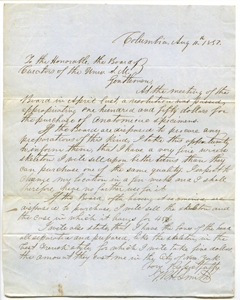 Columbia Aug
To the Honorable the Board of
Curators of the
Gentlemen
At the meeting of the
Board in April last a resolution was
appropriating one hundred and fifty dollars for
the purchase of anatomical specimens
If the Board are disposed to procure any
preparations of this kind I take this opportunity
to inform them, that I have a
skeleton I will sell upon better terms than they
can purchase one of the same quality. I expect to
change my location in a few weeks and I shall
therefore have no further use for it.
If the Board, after
disposed to purchase I will sell the skeleton and
the case in which it hangs for
I will also state that I have the
all separated and prepared, like the skeleton, in the
best French style, for which I will take five dollars
the amount they cost me in the city of New York
Very Respectfully